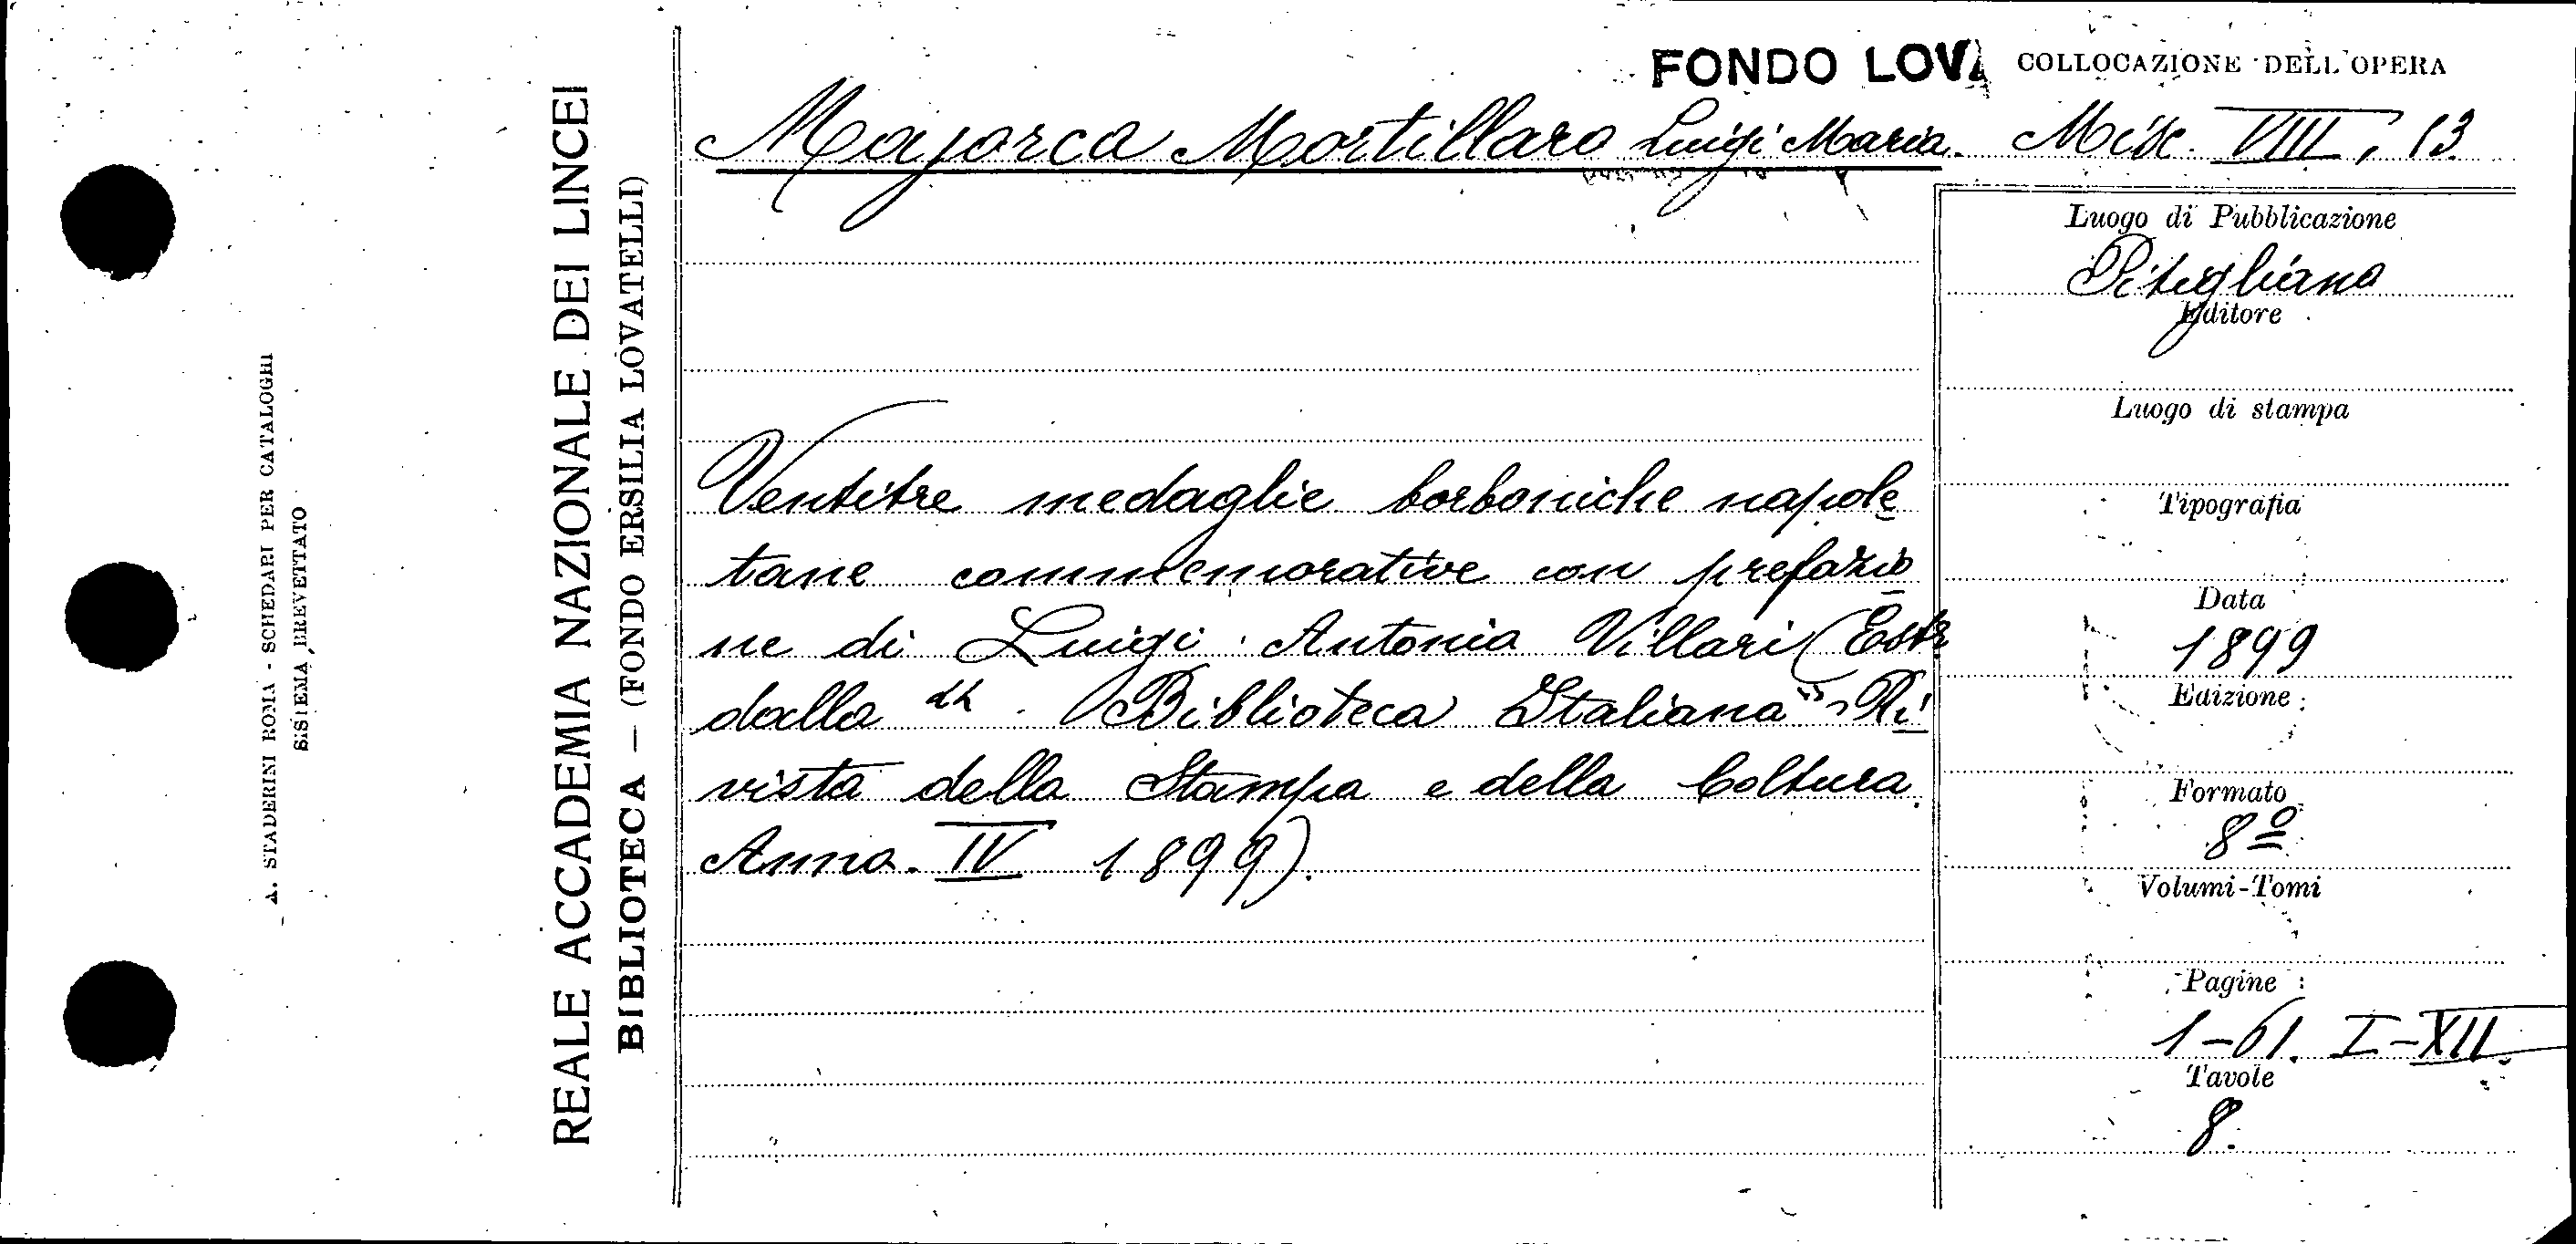 A. STADERINI ROMA - SCHEDARI PER CATALOGHI
SISTEMA BREVETTATO
REALE ACCADEMIA NAZIONALE DEI LINCEI
BIBLIOTECA — (FONDO ERSILIA LOVATELLI)
FONDO LOVA COLLOCAZIONE DELL'OPERA
Majorca Mortillaro Luigi Maria. Misc. VIII, 13
Ventitre medaglie borboniche napole
tane commemorative con prefazio
ne di Luigi Antonio Villari (Estr
dalla "Biblioteca Italiana" Ri
vista della Stampa e della Coltura.
Anno. IV 1899).
Luogo di Pubblicazione
Pitigliano
Editore
Luogo di stampa
Tipografia
Data
1899
Edizione
Formato
8º
Volumi-Tomi
Pagine
1-61. I-XII.
Tavole
8.